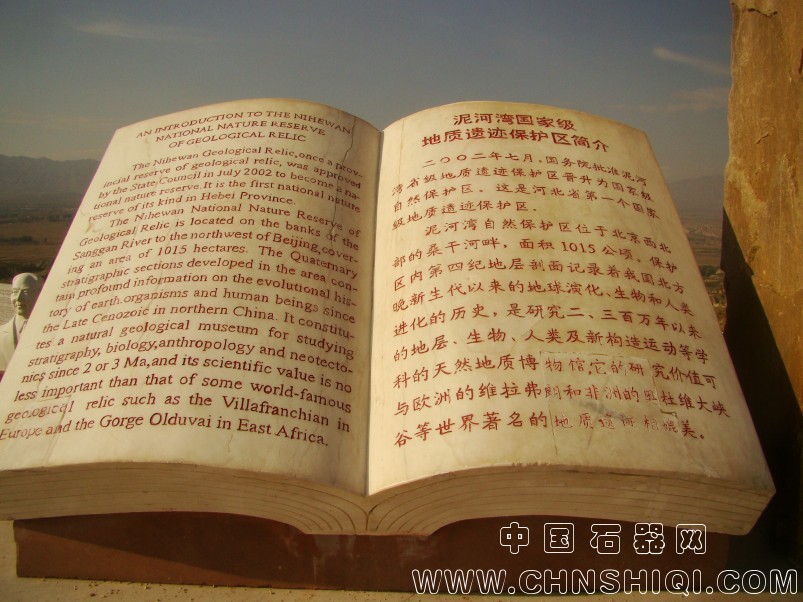 AN INTRODUCTION TO THE NIHEWAN
NATIONAL NATURE RESERVE
OF GEOLOGICAL RELIC
The Nihewan Geological Relic,once a prov-
incial reserve of geological relic, was approved
by the State Council in July 2002 to become a na-
tional nature reserve.It is the first national nature
reserve of its kind in Hebei Province.
The Nihewan National Nature Reserve of
Geological Relic is located on the banks of the
Sanggan River to the northwest of Beijing,cover-
ing an area of 1015 hectares. The Quaternary
stratigraphic sections developed in the area con-
tain profound information on the evolutional his-
tory of earth,organisms and human beings since
the Late Cenozoic in northern China. It constitu-
tes a natural geological museum for studying
stratigraphy, biology,anthropology and neotecto-
nics since 2 or 3 Ma,and its scientific value is no
less important than that of some world-famous
geological relic such as the Villafranchian in
Europe and the Gorge Olduvai in East Africa.
泥河湾国家级
地质遗迹保护区简介
二〇〇二年七月,国务院批准泥河
湾省级地质遗迹保护区晋升为国家级
自然保护区。这是河北省第一个国家
级地质遗迹保护区.
泥河湾自然保护区位于北京西北
部的桑干河畔,面积1015公顷。保护
区内第四纪地层剖面记录着我国北方
晚新生代以来的地球演化、生物和人类
进化的历史,是研究二、三百万年以来
的地层、生物、人类及新构造运动等学
科的天然地质博物馆,它的研究价值可
与欧洲的维拉弗朗和非洲的奥杜维大峡
谷等世界著名的地质遗迹相媲美。
中国石器网
WWW.CHNSHIQI.COM